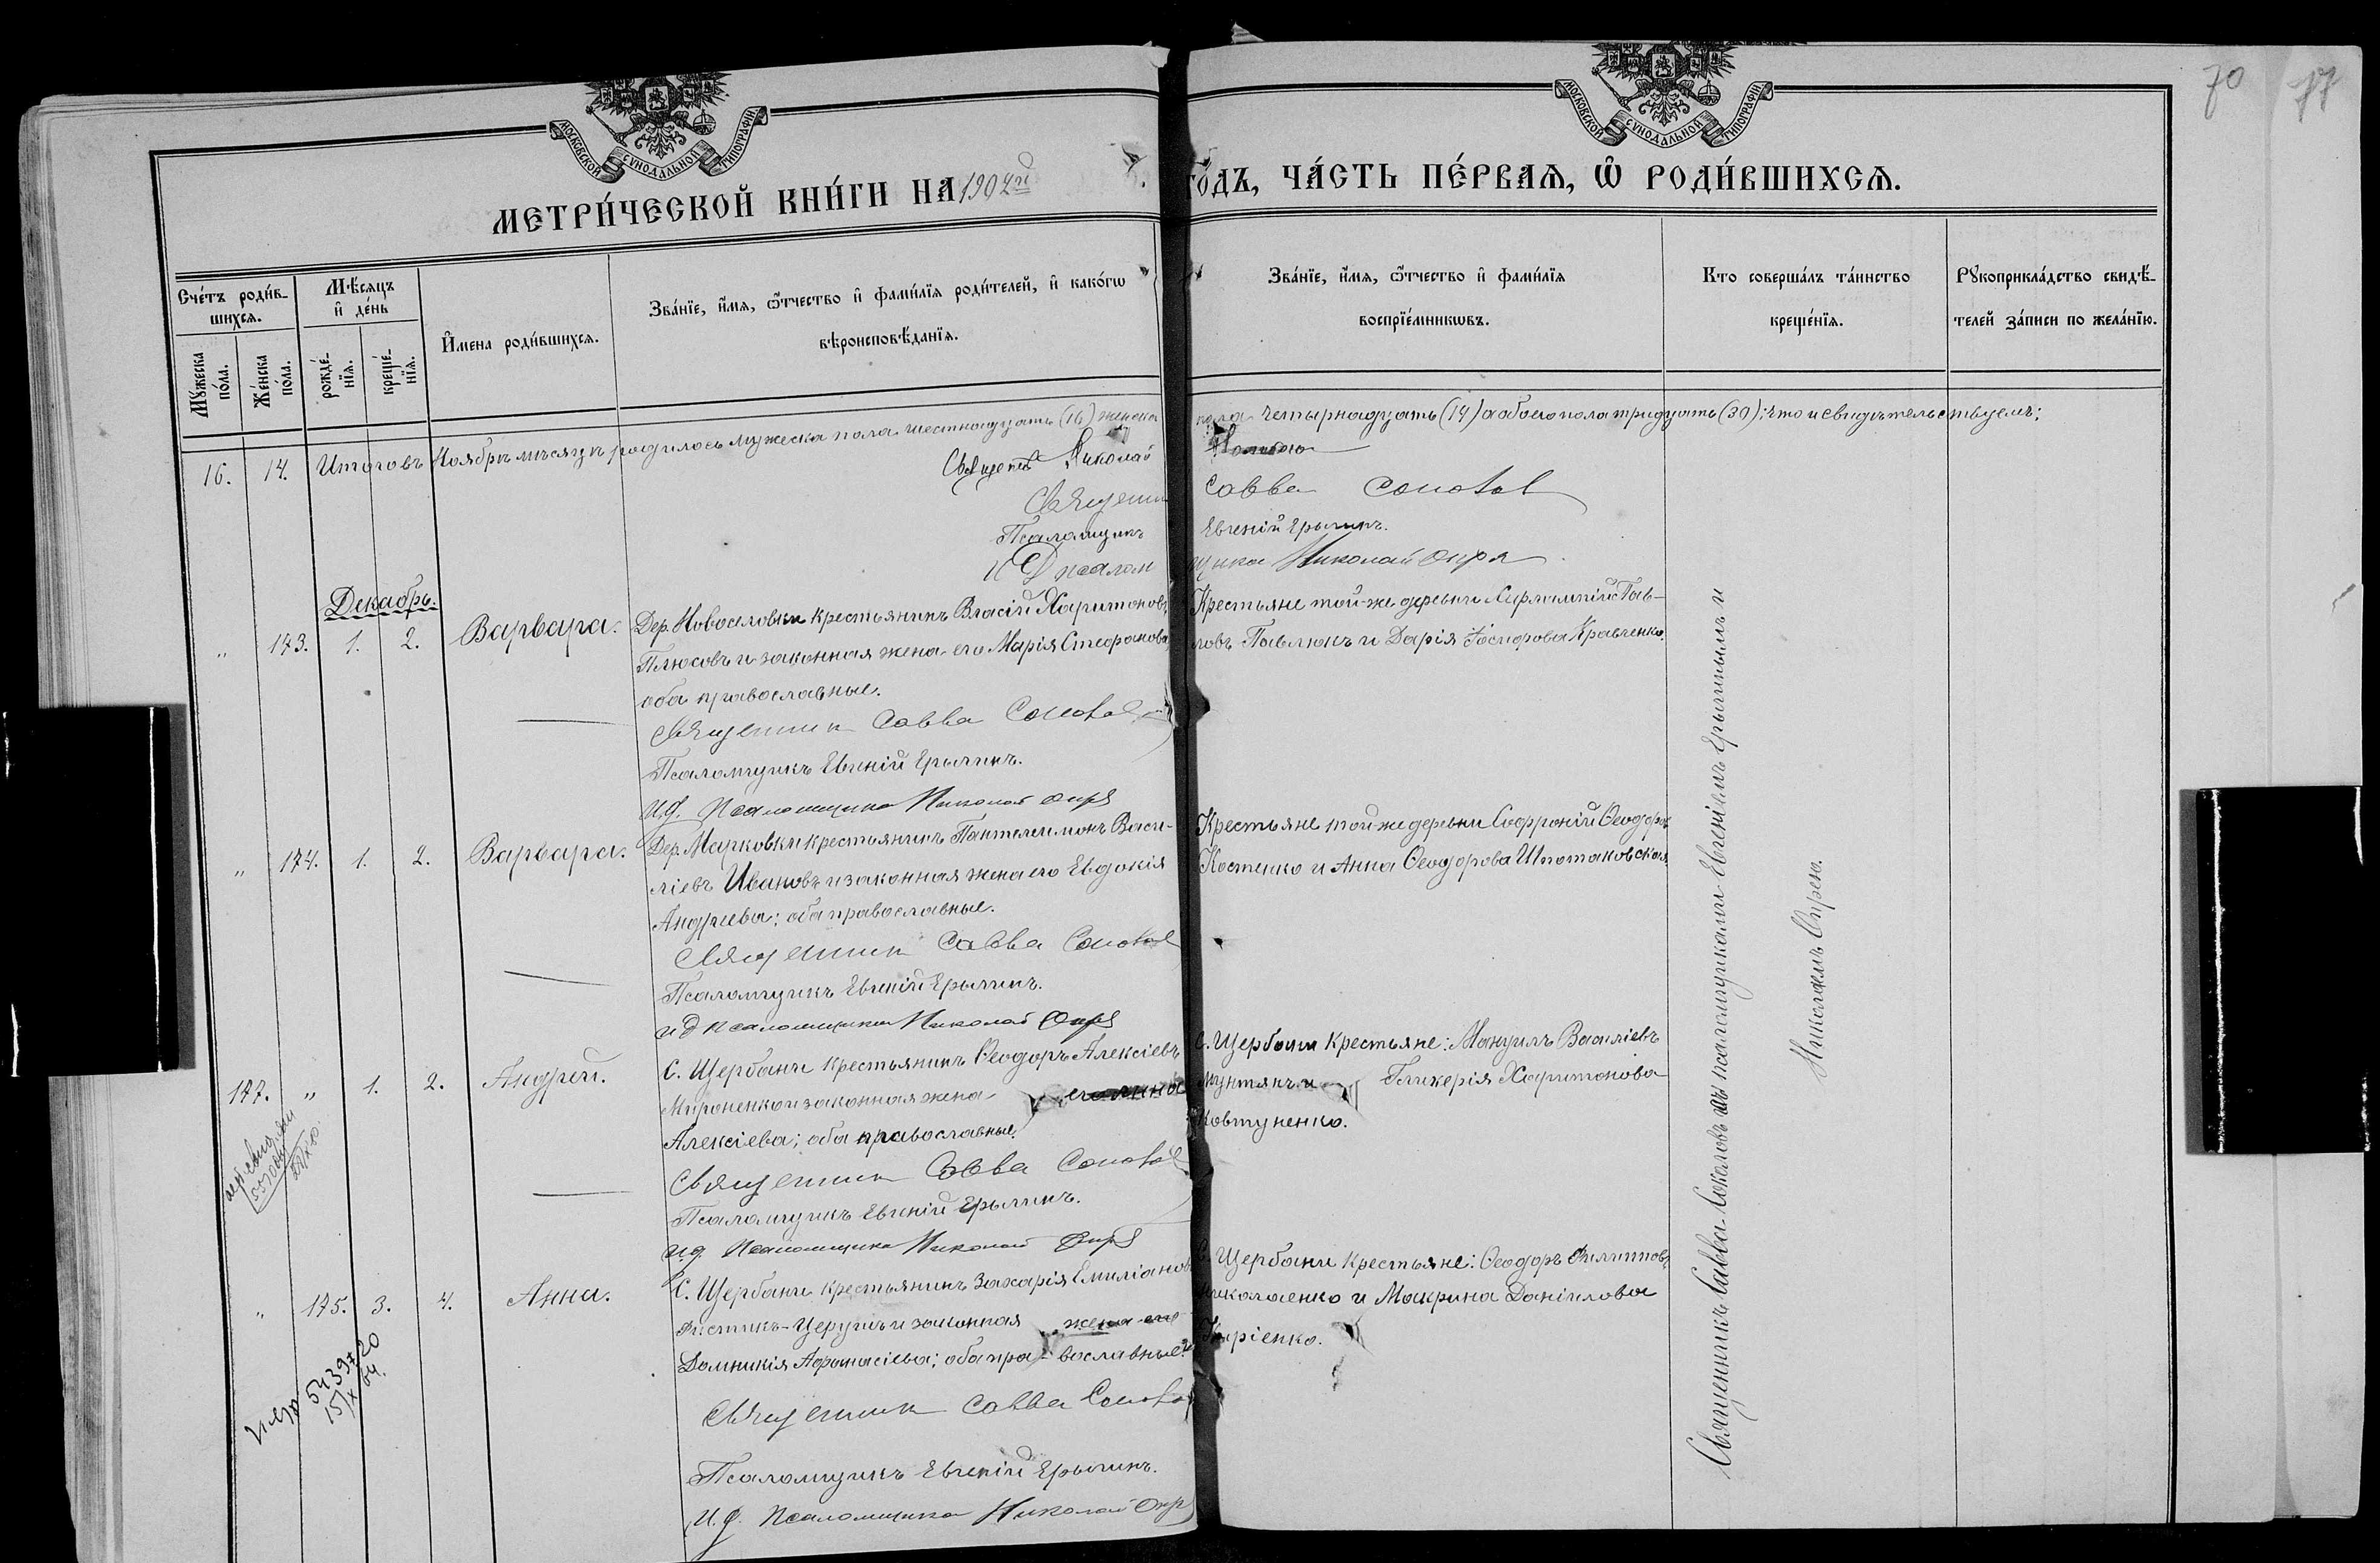 70 77
МОСКОВСКОЙ СѴНОДАЛЬНОЙ ТИПОГРАФІИ
МОСКОВСКОЙ СѴНОДАЛЬНОЙ ТИПОГРАФІИ
МЕТРИ́ЧЕСКОЙ КНИ́ГИ НА 1902й ГО́ДЪ, ЧА́СТЬ ПЕ́РВАѦ, Ѡ҆ РОДИ́ВШИХСѦ.
Сче́тъ роди́в-
шихсѧ.
Мꙋ́жеска по́ла.
Же́нска по́ла.
Мѣ́сѧцъ
и҆ де́нь
рожде́-
нїѧ.
креще́-
нїѧ.
И҆мена роди́вшихсѧ.
Зва́нїе, и҆́мѧ, ѻ҆́тчество и҆ фами́лїѧ роди́телей, и҆ како́гѡ
вѣроисповѣ́данїѧ.
Зва́нїе, и҆́мѧ, ѻ҆́тчество и҆ фами́лїѧ
воспрїе́мникѡвъ.
Кто соверша́лъ та́инство
креще́нїѧ.
Рꙋкоприкла́дство свидѣ́-
телей за́писи по жела́нїю.
16. 14. Итого въ Ноябрѣ мѣсяцѣ родилось мужеска пола шестнадцать (16) женска пола четырнадцать (14) а обоего пола тридцать (30); что и свидѣтельствуемъ:
Священ Николай
Священни Савва Соколов
Псаломщикъ Евгеній Ерыгинъ.
И Д псаломщика Николай Опря
Декабрь.
" 173. 1. 2. Варвара.
Дер. Новоселовки крестьянинъ Власій Харитоновъ
Плюсовъ и законная жена его Марія Стефанова,
оба православные.
Священник Савва Соколов
Псаломщикъ Евгеній Ерыгинъ.
И.д. псаломщика Николай Опря
Крестьяне той-же деревни Харлампій Пав-
ловъ Павлюкъ и Дарія Іосифова Кравченко.
" 174. 1. 2. Варвара.
Дер. Марковки крестьянинъ Пантелеимонъ Васи-
ліевъ Ивановъ и законная жена его Евдокія
Андреева; оба православные.
Священник Савва Соколов
Псаломщикъ Евгеній Ерыгинъ.
и д псаломщика Николай Опря
Крестьяне той-же деревни Софроній Ѳеодоров
Костенко и Анна Ѳеодорова Шпотаковская
177. " 1. 2. Андрей.
С. Щербани крестьянинъ Ѳеодоръ Алексіевъ
Мироненко и законная жена его
Алексіева; оба православные.
Священник Савва Соколов
Псаломщикъ Евгеній Ерыгинъ.
и.д. псаломщика Николай Опря
С. Щербани крестьяне: Мануилъ Василіевъ
Мунтянъ и Гликерія Харитонова
Ковтуненко.
" 175. 3. 4. Анна.
С. Щербани крестьянинъ Захарія Емиліанов
и законная жена его
Домникія Афанасіева; оба православные.
Священник Савва Соколов
Псаломщикъ Евгеній Ерыгинъ.
И.д. псаломщика Николай Опря
С. Щербани крестьяне: Ѳеодоръ Филиппов
Николаенко и Макрина Даніилова
Киріенко.
5439
15/X 64.
Священникъ Савва Соколовъ съ псаломщиками Евгеніемъ Ерыгинымъ и
Николаемъ Опрею.